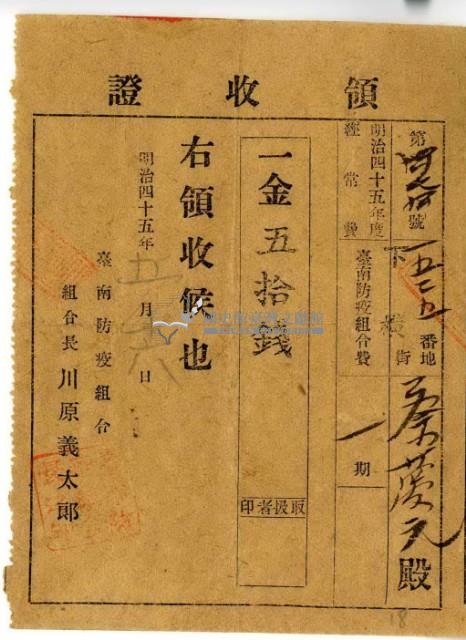 領收證
第 號
下橫街
一五二五番地
蔡 元殿
明治四十五年度
經常費
臺南防疫組合費
一期
一金五拾錢
取扱者印
右領收候也
明治四十五年五月 六日
臺南防疫組合
組合長川原義太郎
18